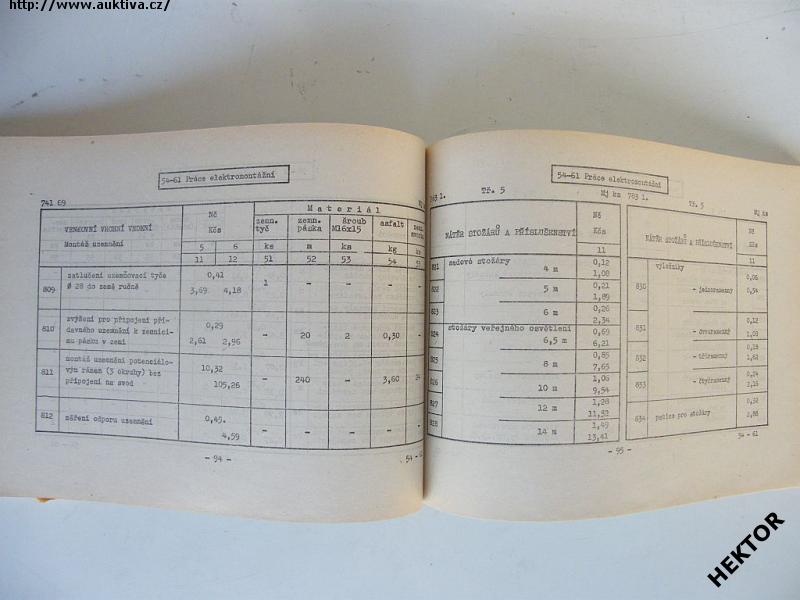 http://www.auktiva.cz/
54-61 Práce elektromontážní
741 69
VENKOVNÍ VRCHNÍ VEDENÍ
Montáž uzemnění
Nč
Kčs
5 6
11 12
Materiál
zemn. tyč
zemn. páska
šroub M16x15
asfalt
ks m ks kg
51 52 53 54
809 zatlučení uzemňovací tyče Ø 28 do země ručně
0,41
3,69 4,18
1 - - -
810 zvýšení pro připojení přídavného uzemnění k zemnicímu pásku v zemi
0,29
2,61 2,96
- 20 2 0,30
811 montáž uzemnění potenciálovým rámem (3 okruhy) bez připojení na svod
10,32
105,26
- 240 - 3,60 24
812 měření odporu uzemnění
0,45
4,59
- - - -
- 94 -
54 -
54-61 Práce elektromontážní
783 1. Tř. 5 Mj ks
NÁTĚR STOŽÁRŮ A PŘÍSLUŠENSTVÍ
Nč
Kčs
11
821 sadové stožáry
4 m 0,12
1,08
822 5 m 0,21
1,89
823 6 m 0,26
2,34
824 stožáry veřejného osvětlení
6,5 m 0,69
6,21
825 8 m 0,85
7,65
826 10 m 1,06
9,54
827 12 m 1,28
11,52
828 14 m 1,49
13,41
783 1. Tř. 5 Mj ks
NÁTĚR STOŽÁRŮ A PŘÍSLUŠENSTVÍ
Nč
Kčs
11
výložníky
830 - jednoramenný 0,06
0,54
831 - dvouramenný 0,12
1,08
832 - tříramenný 0,18
1,62
833 - čtyřramenný 0,24
2,16
834 patice pro stožáry 0,32
2,88
- 95 -
54 - 61
HEKTOR